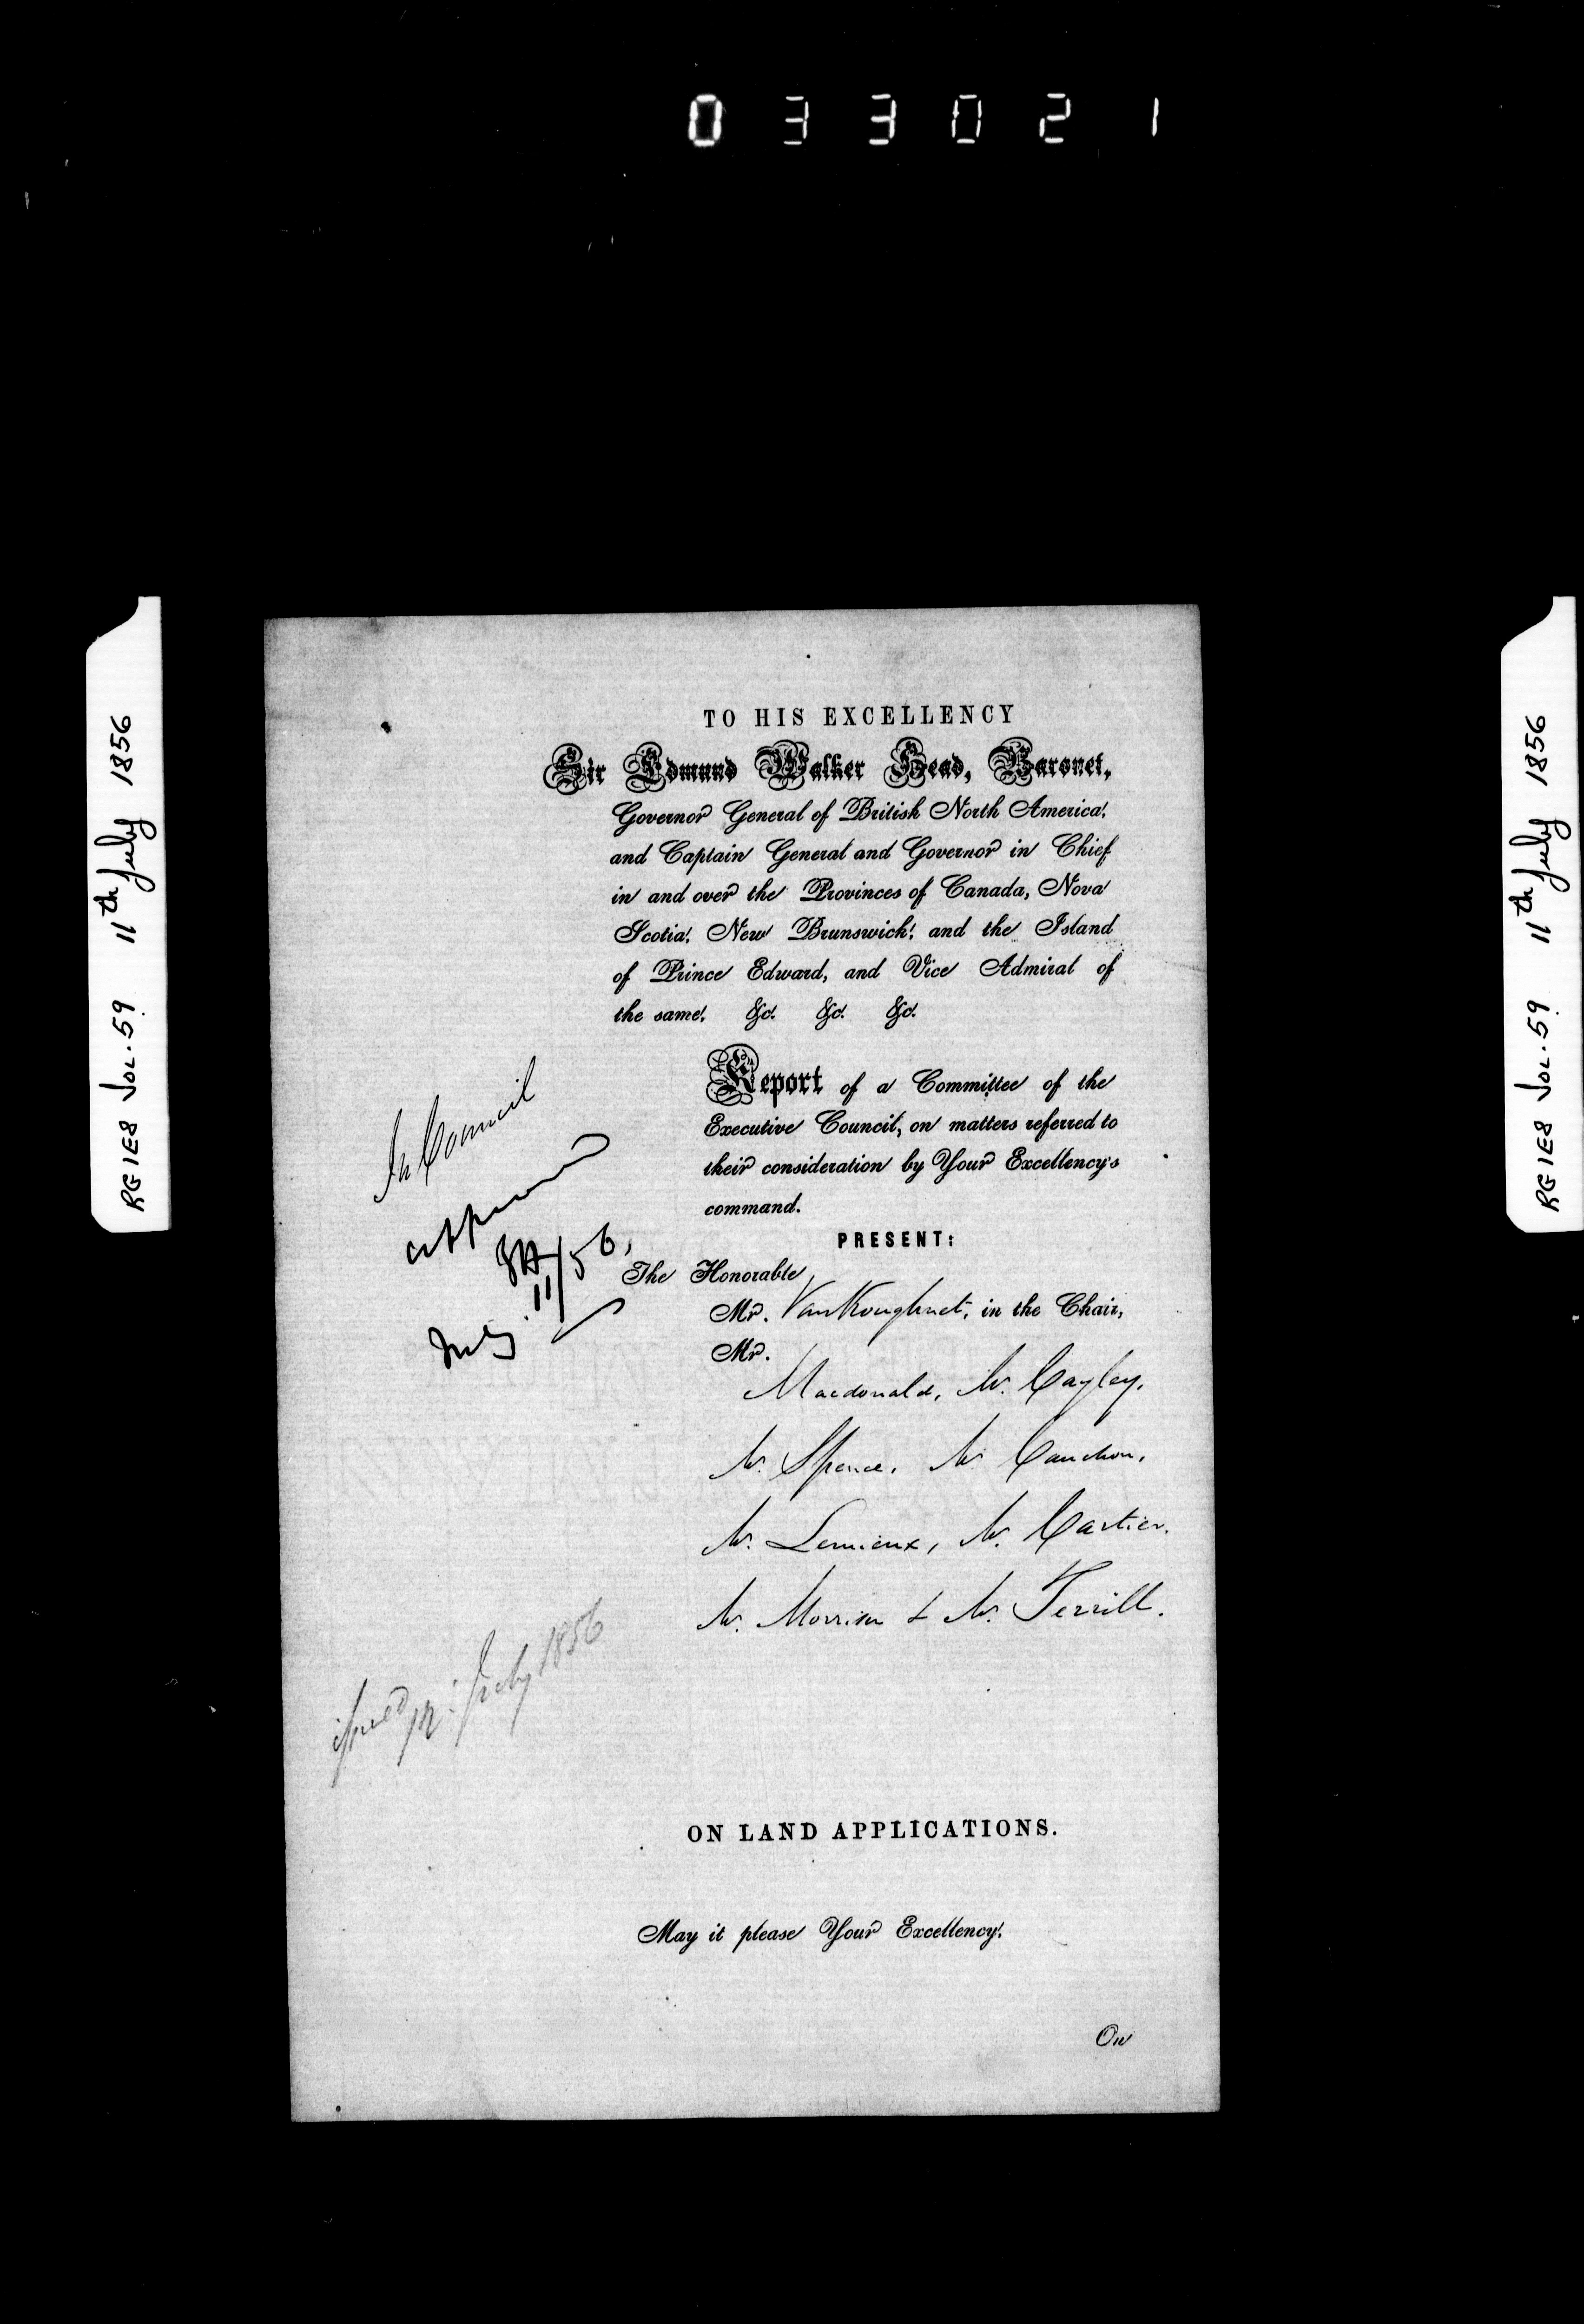 033021
RG1E8 VOL. 59 11th July 1856
RG1E8 VOL. 59 11th July 1856
TO HIS EXCELLENCY
Sir Edmund Walker Head, Baronet,
Governor General of British North America,
and Captain General and Governor in Chief
in and over the Provinces of Canada, Nova
Scotia, New Brunswick, and the Island
of Prince Edward, and Vice Admiral of
the same, &c. &c. &c.
Report of a Committee of the
Executive Council, on matters referred to
their consideration by Your Excellency's
command.
In Council
approved
July 11/56,
PRESENT:
The Honorable
Mr. VanKoughnet, in the Chair,
Mr.
Macdonald, Mr. Cayley,
Mr. Spence, Mr. Cauchon,
Mr. Lemieux, Mr. Cartier,
Mr. Morrison & Mr. Terrill.
issued 12 July 1856
ON LAND APPLICATIONS.
May it please Your Excellency,
On